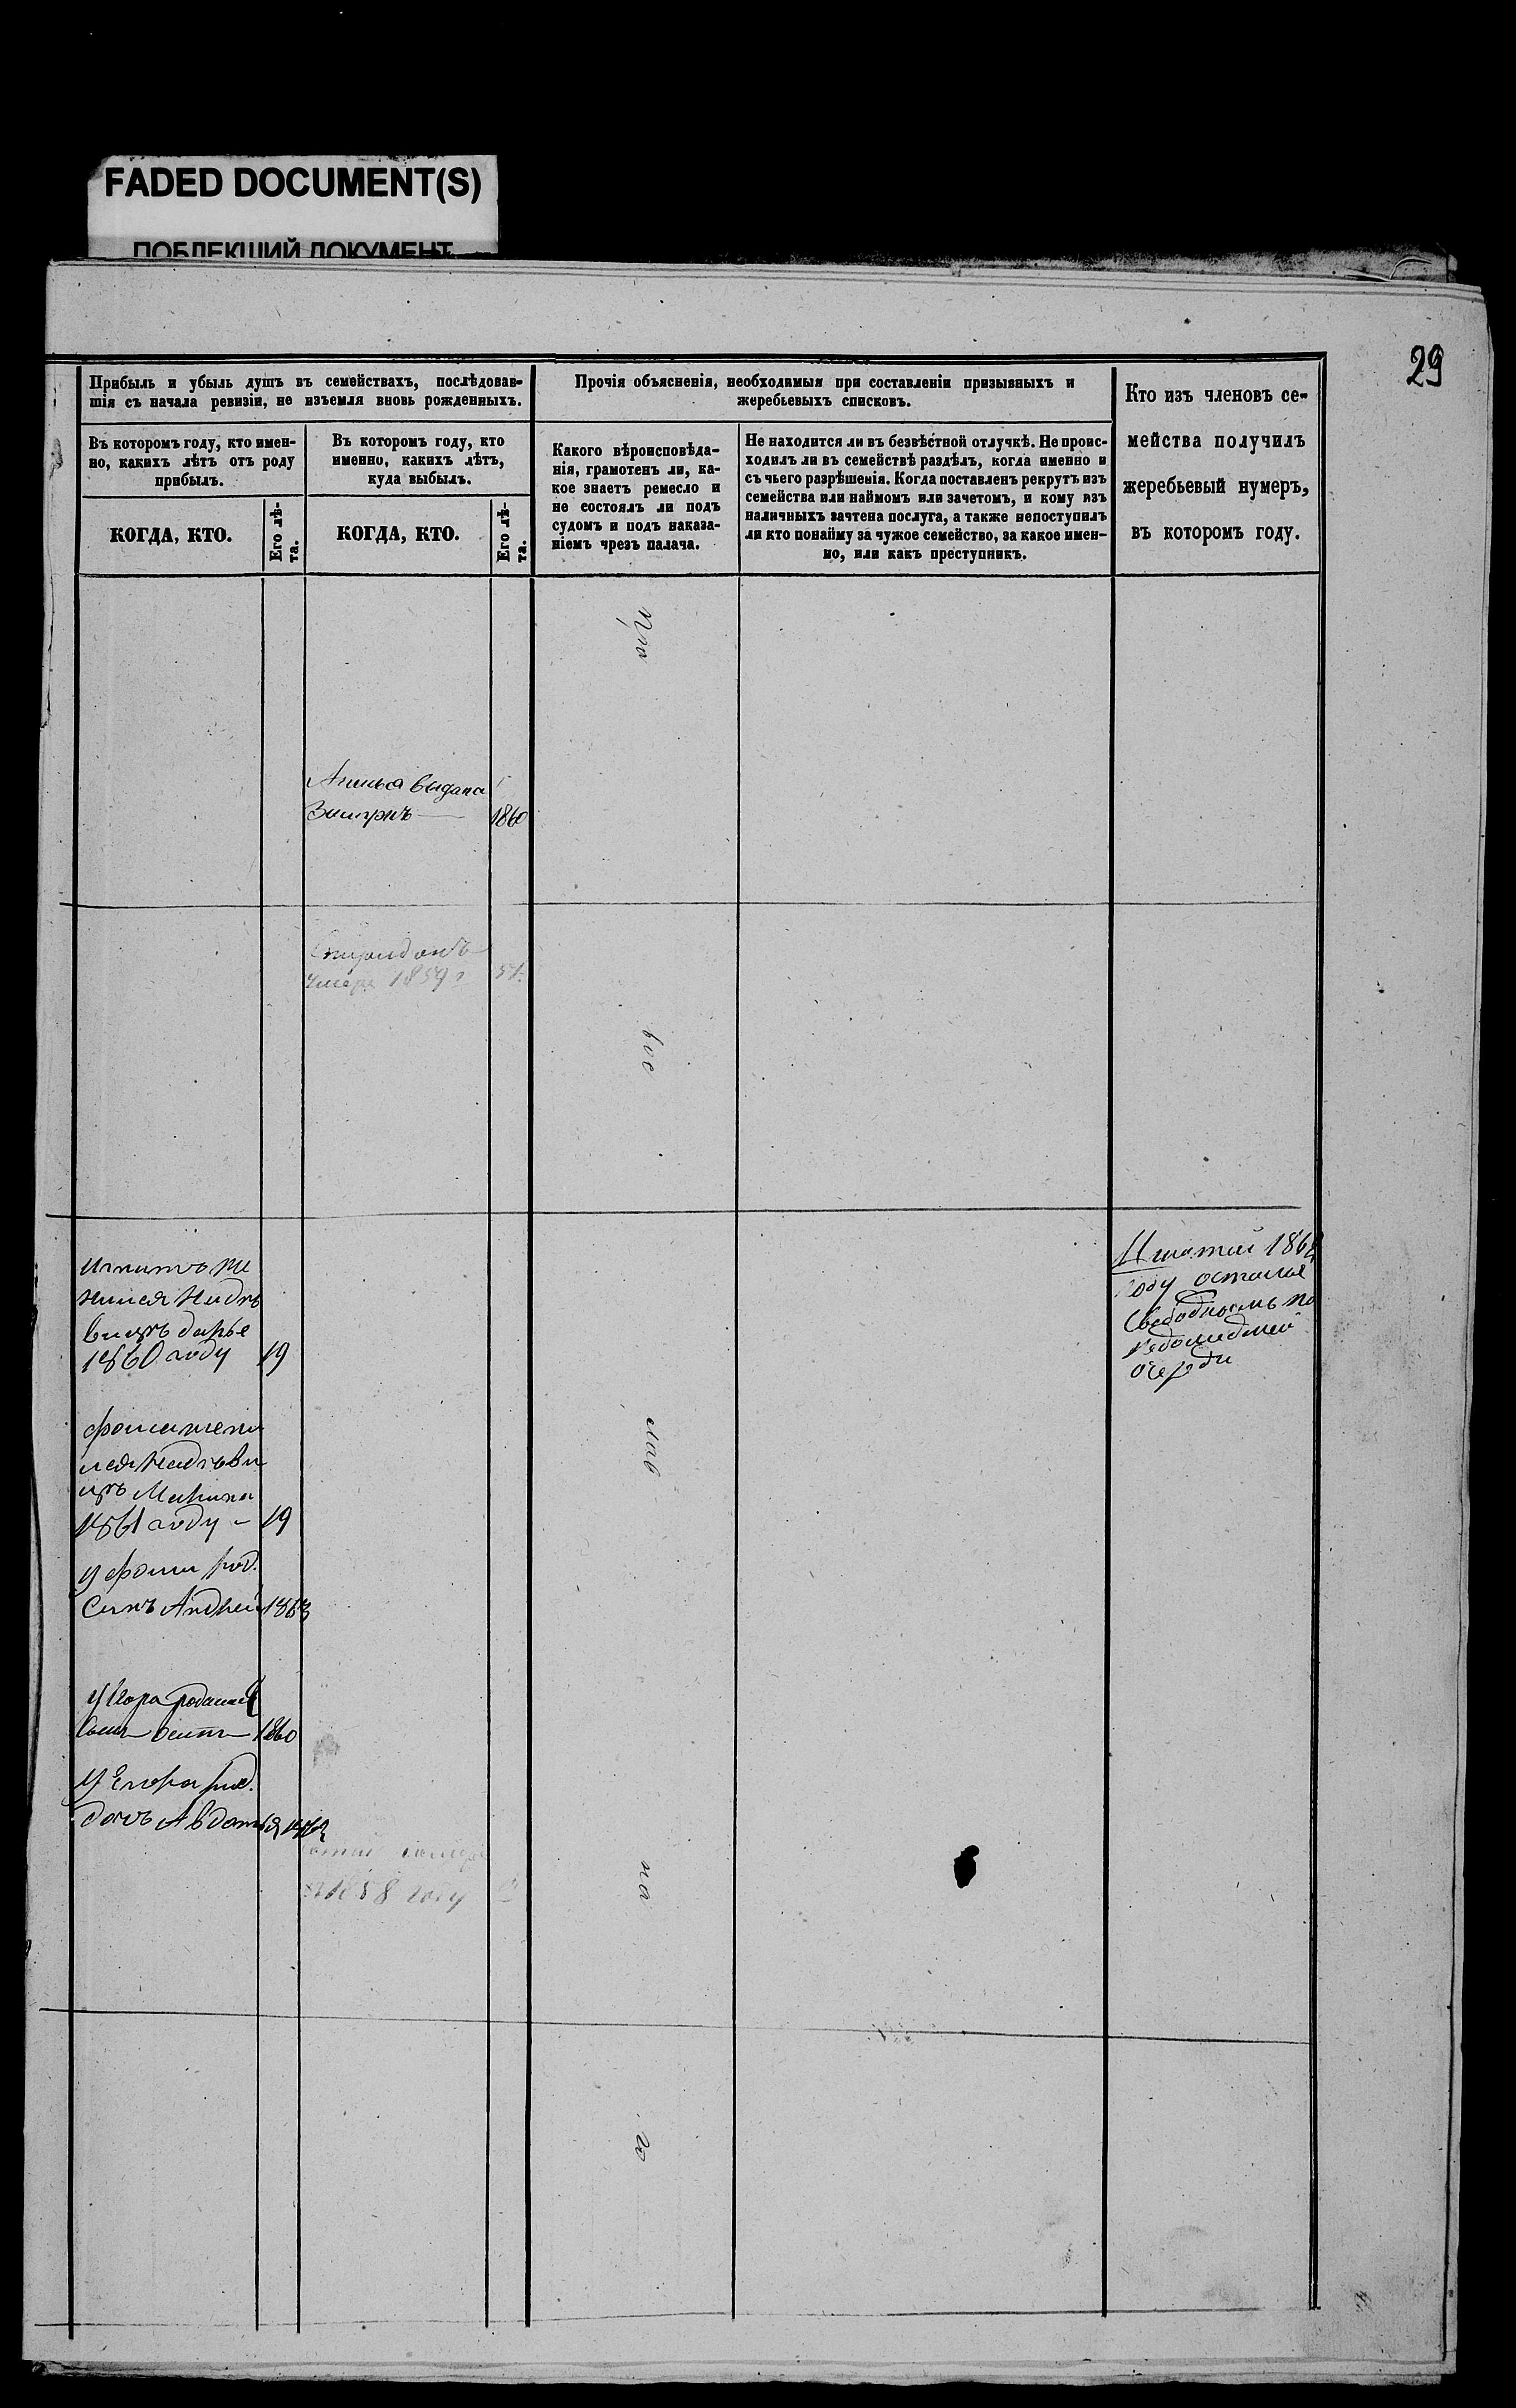 FADED DOCUMENT(S)
ПОБЛЕКШИЙ ДОКУМЕНТ
29
Прибыль и убыль душъ въ семействахъ, послѣдовав-
шія съ начала ревизіи, не изъемля вновь рожденныхъ.
Въ которомъ году, кто имен-
но, какихъ лѣтъ отъ роду
прибылъ.
КОГДА, КТО.
Его лѣ-
та.
Въ которомъ году, кто
именно, какихъ лѣтъ,
куда выбылъ.
КОГДА, КТО.
Его лѣ-
та.
Прочія объясненія, необходимыя при составленіи призывныхъ и
жеребьевыхъ списковъ.
Какого вѣроисповѣда-
нія, грамотенъ ли, ка-
кое знаетъ ремесло и
не состоялъ ли подъ
судомъ и подъ наказа-
ніемъ чрезъ палача.
Не находится ли въ безвѣстной отлучкѣ. Не проис-
ходилъ ли въ семействѣ раздѣлъ, когда именно и
съ чьего разрѣшенія. Когда поставленъ рекрутъ изъ
семейства или наймомъ или зачетомъ, и кому изъ
наличныхъ зачтена послуга, а также непоступилъ
ли кто понайму за чужое семейство, за какое имен-
но, или какъ преступникъ.
Кто изъ членовъ се-
мейства получилъ
жеребьевый нумеръ,
въ которомъ году.
Пра
выдана
1860
Спиридонъ
умеръ 1859 г
51
вос
Игнатъ же
нился
1860 году 19
году остался
свободнымъ по
недошедшей
очереди
Фома жени
лся
1861 году – 19
слав
у Фомы род.
Сынъ Андрей 1863
у Егора родился
Сынъ Осипъ 1860
у Егора род.
дочь Авдотья
1858 году
на
го